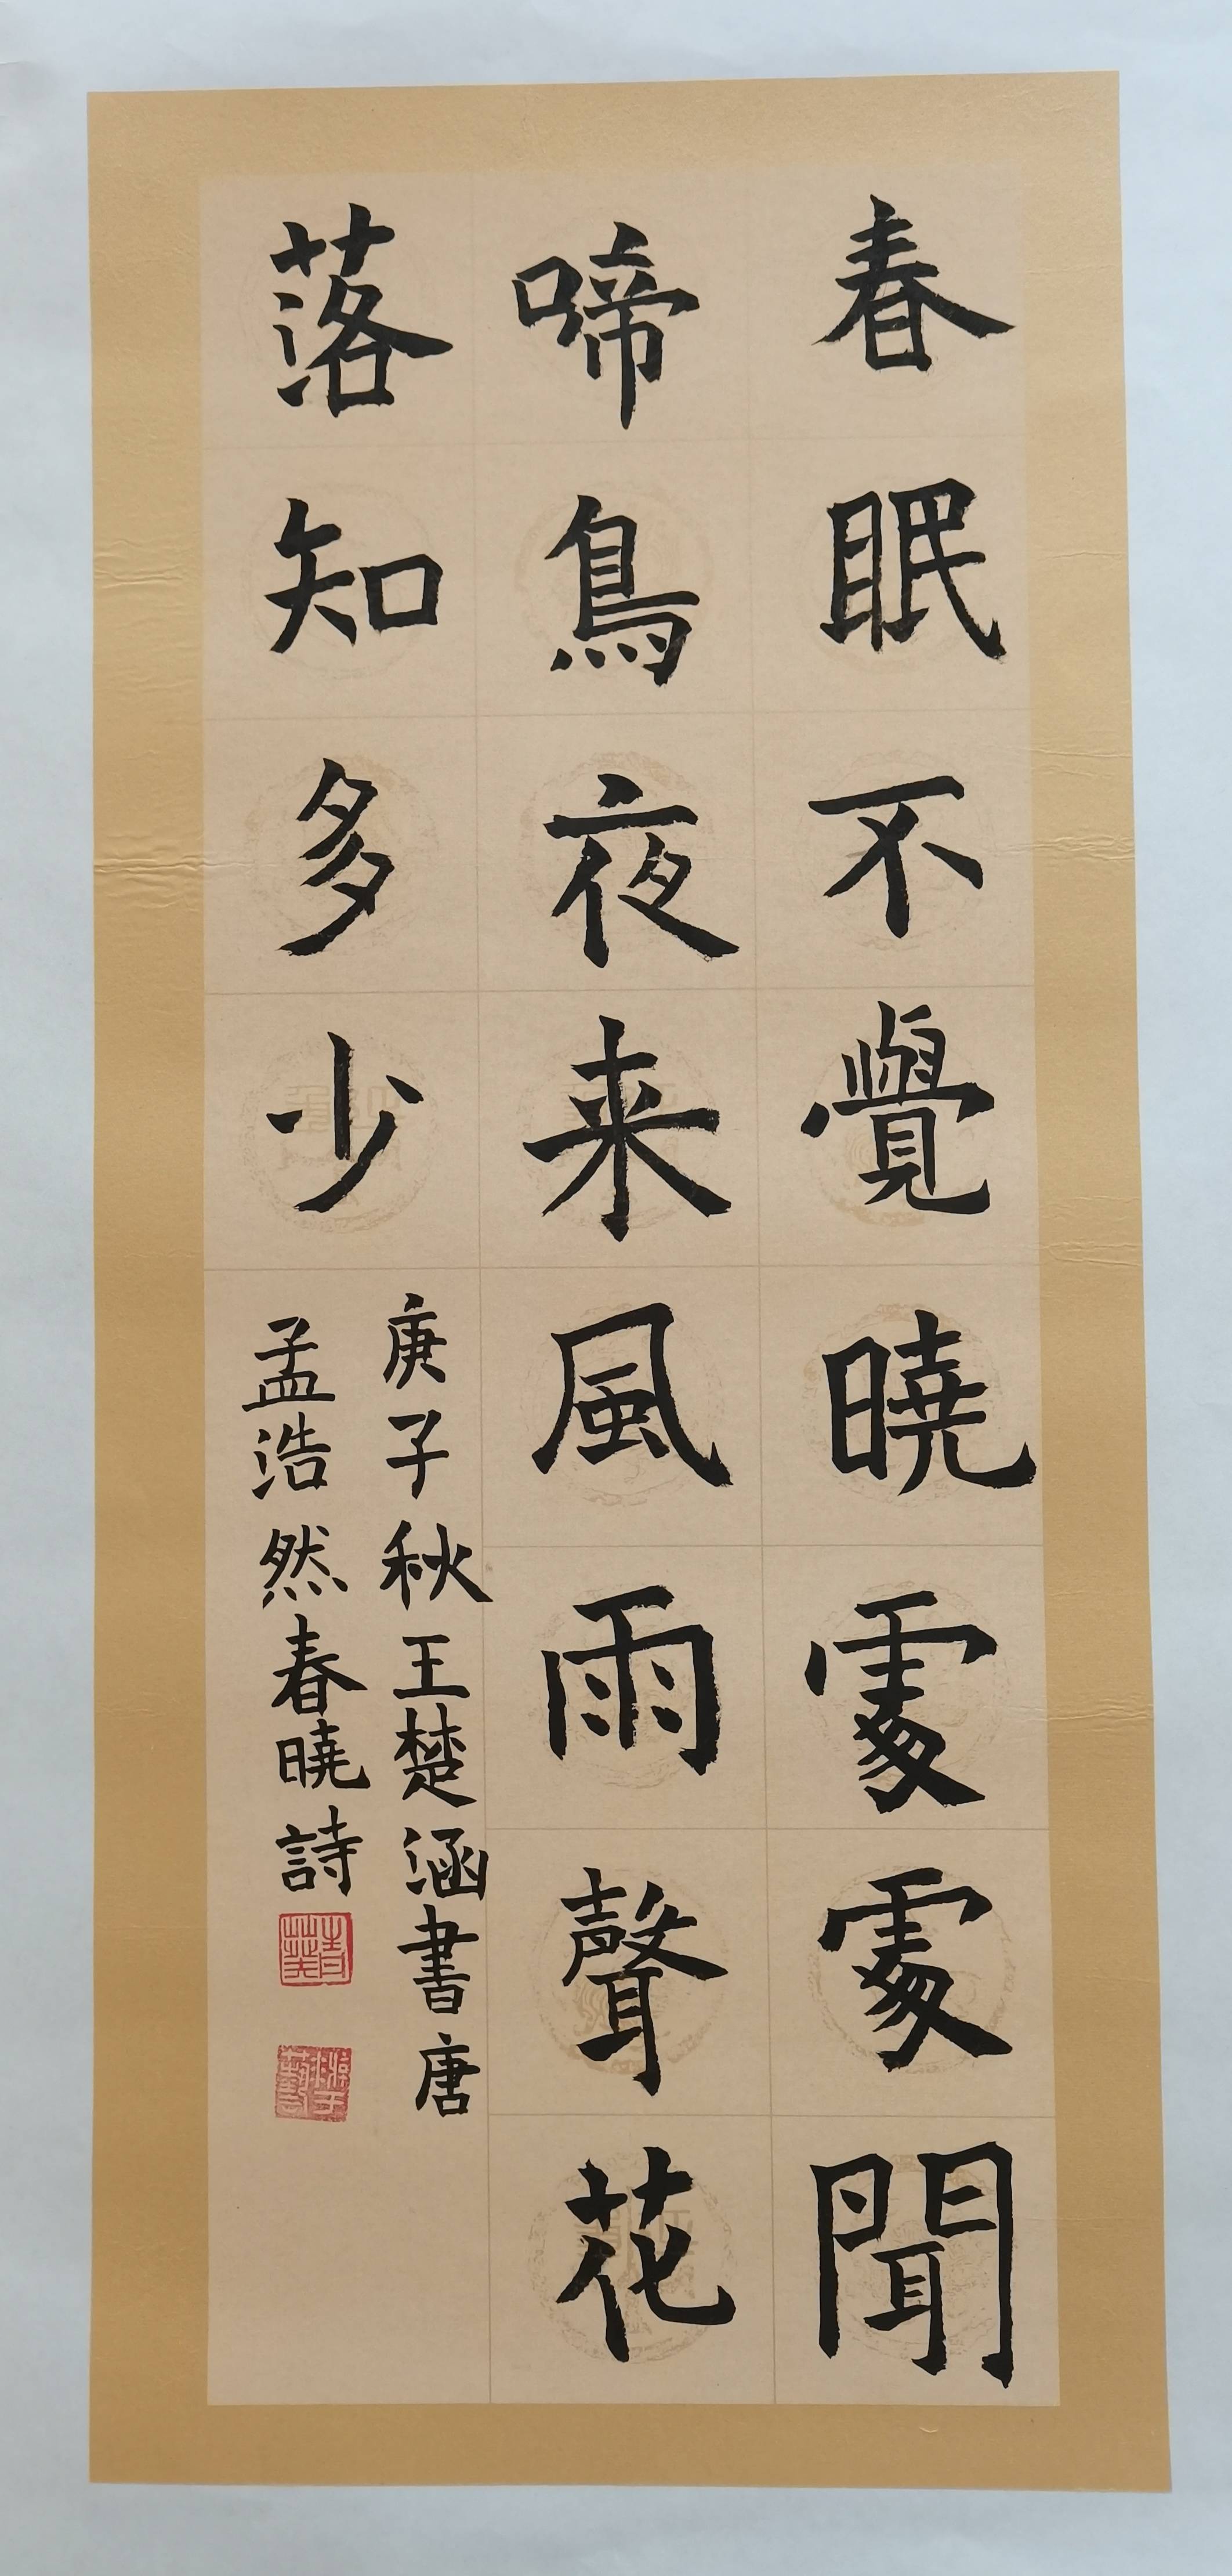 春眠不覺曉處處聞
啼鳥夜来風雨聲花
落知多少
庚子秋王楚涵書唐
孟浩然春曉詩